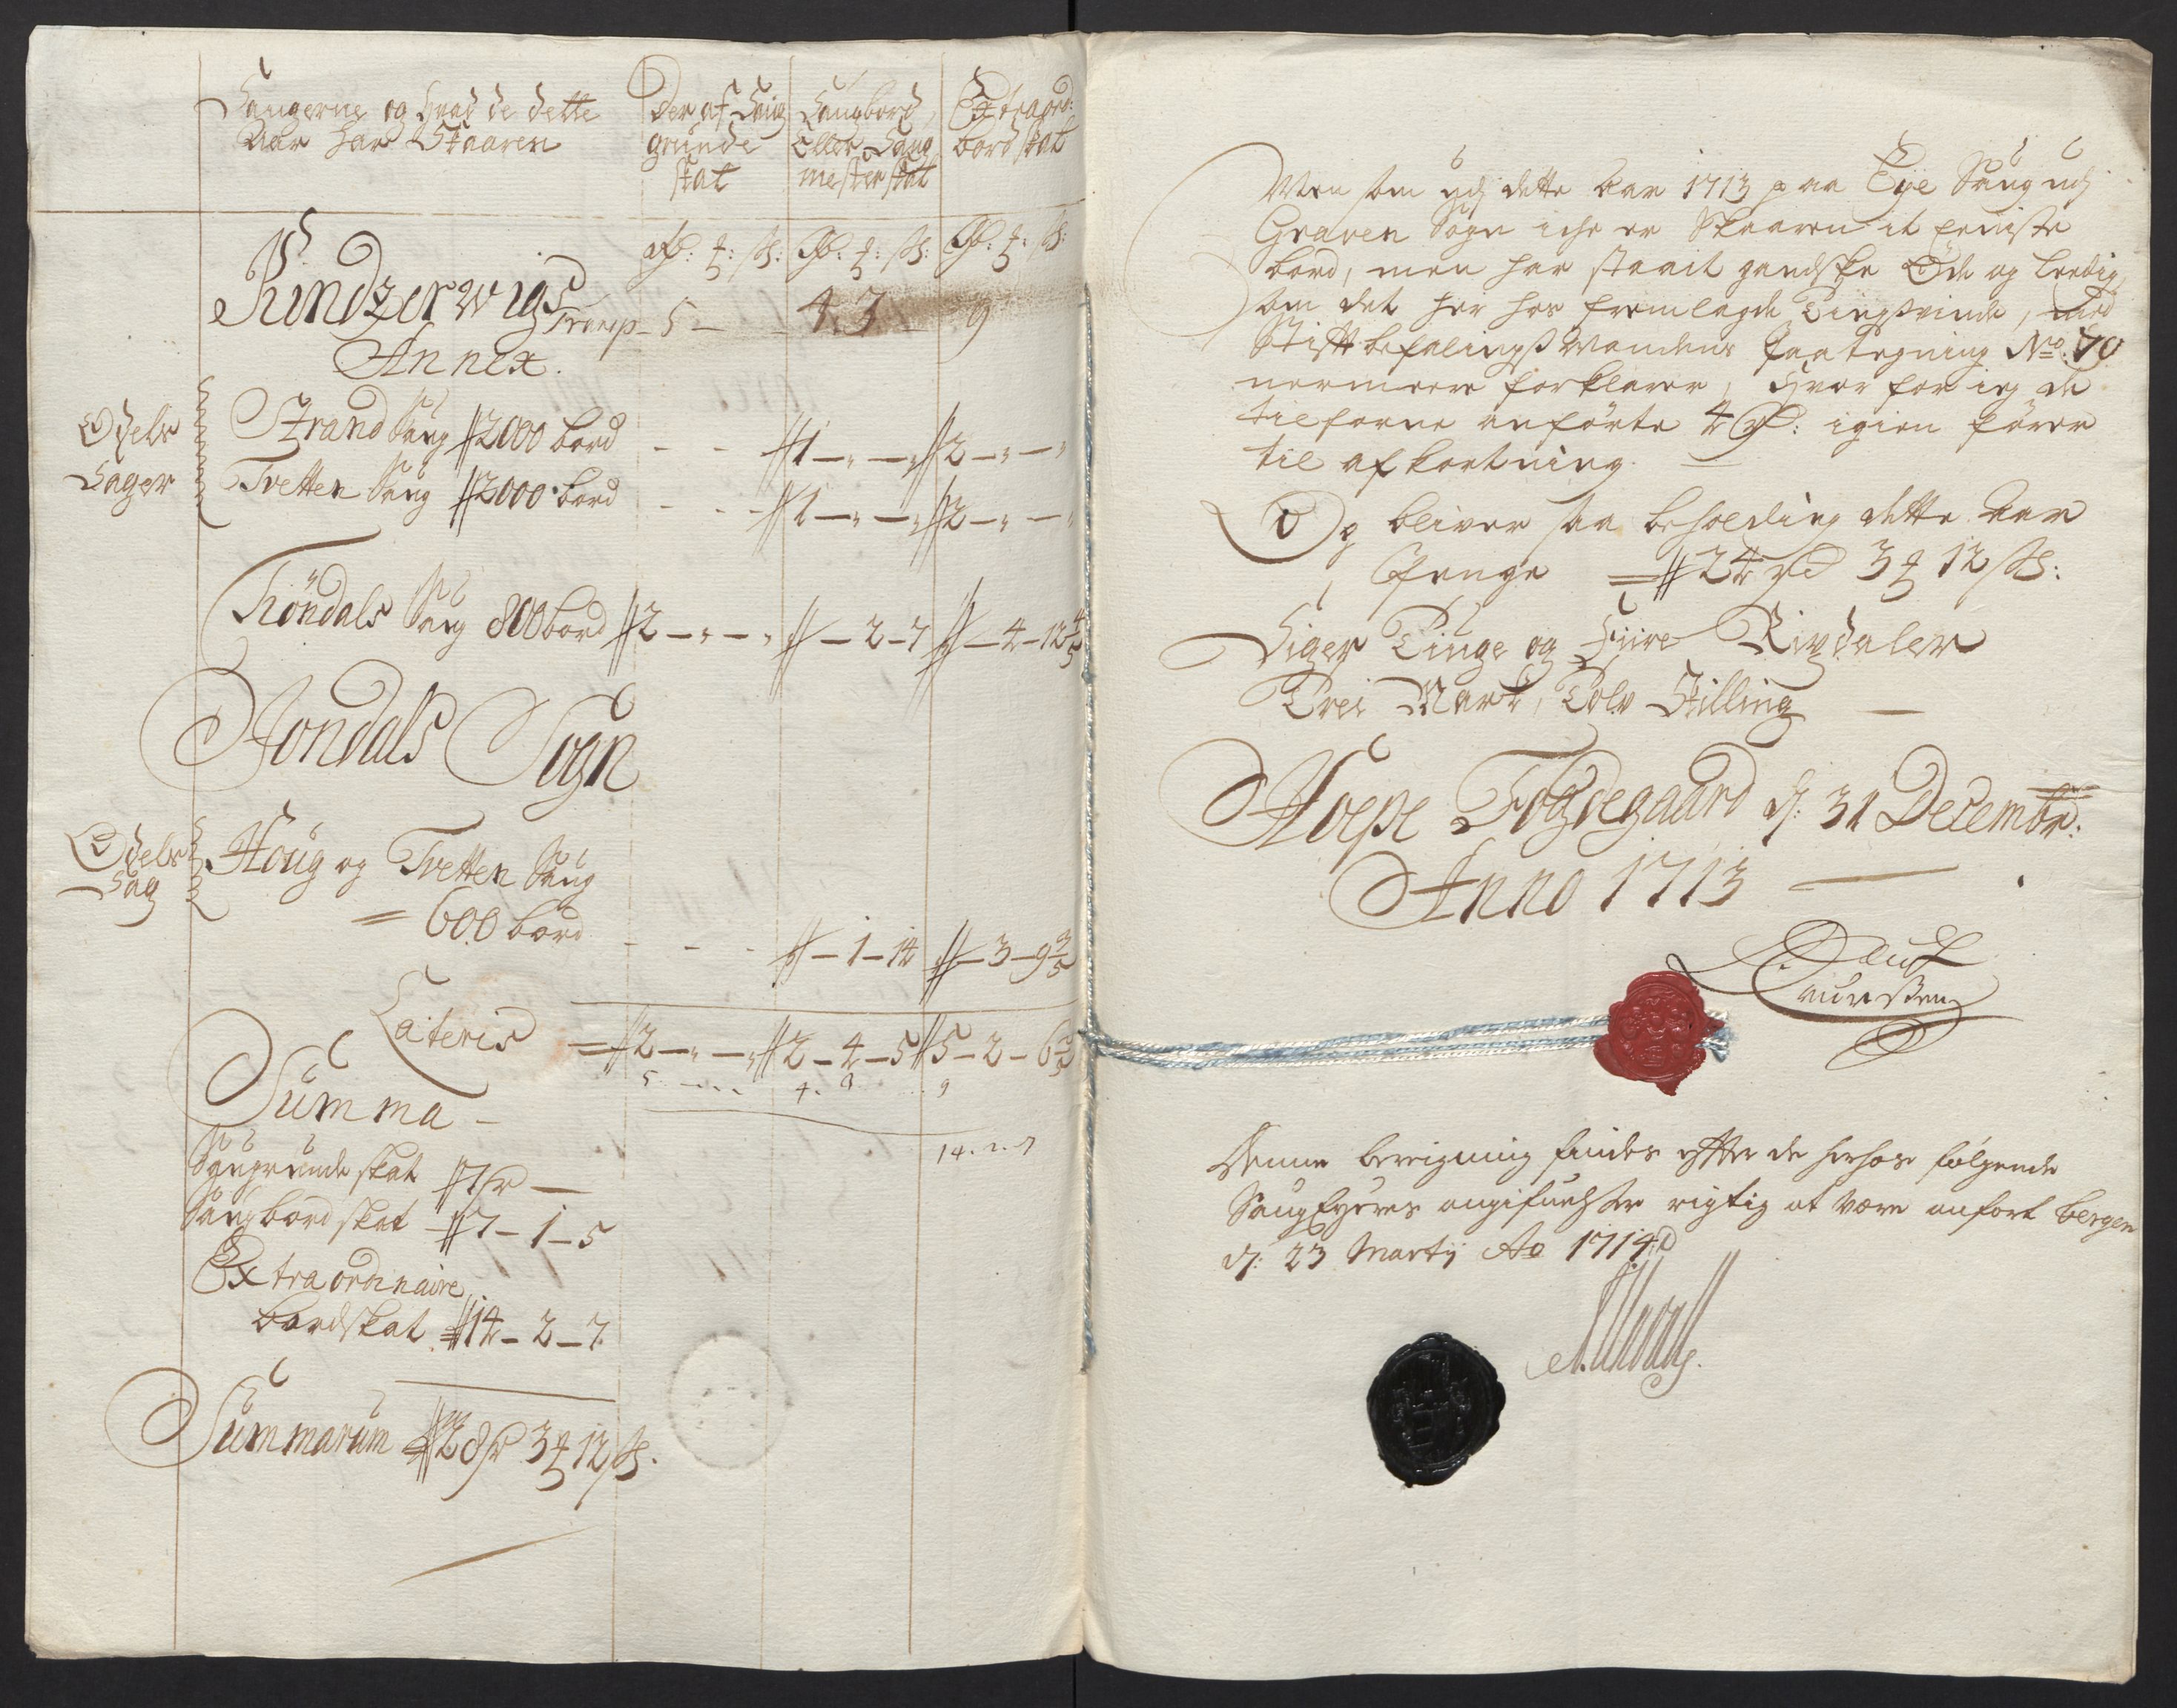 Saugerne og hvad de dette
Aar har Skaaren
Der af Saug
grunde
skat
Saugbord
Eller Saug
mester skat
Extraord:
bord skat
Kindzerwigs
Annex.
Transp 5 — 4. 3 — 9
Odels
Sager
Strand Saug 2000 bord - - 1 — „ — „ 2 — „ — „
Tvetten Saug 2000 bord - - - 1 — „ — „ 2 — „ — „
Röndals Saug 800 bord 2 — „ — „ — 2 — 7 — 4 — 12 4/5
Jondals Sogn
Odels
Sag
Houg og Tvetten Saug
= 600 bord - - - — 1 — 14 — 3 — 9 3/5
Lateris = 2 — „ — „ 2 — 4 — 5 5 — 2 — 6 2/5
5. - - - 4. 3 .. 9
14. 2. 7
Summa -
Saugrunde skat 7 rd —
Saugbord skat 7 — 1 — 5
Extraordinaire
bordskat 14 — 2 — 7
Summarum 28 rd 3 ꝑ 12 sh.
Men som udj dette aar 1713 paa Eye Saug udj
Graven Sogn iche er Skaaren it eeniste
bord, men har staait gandske Öde og Leedig,
som det her hos fremlagde Tingsvinde, med
Stiftbefalingsmandens paategning No. 70
nermeere forklarer, Hvor for ieg de
tilforne anförte 4 rd: igien förer
til afkortning. —
Og bliver saa beholding dette aar
Penge = 24 rd 3 ꝑ 12 sh:
Siger Tiuge og Fiire Rixdaler
Trei Mark, Tolv Skilling —
Hope Fogdegaard d: 31 Decembr:
Anno 1713 —
Denne beregning findes efter de herhos fölgende
Saug Eyeres angifvelser rigtig at være anfört Bergen
d: 23 Martij Ao 1714